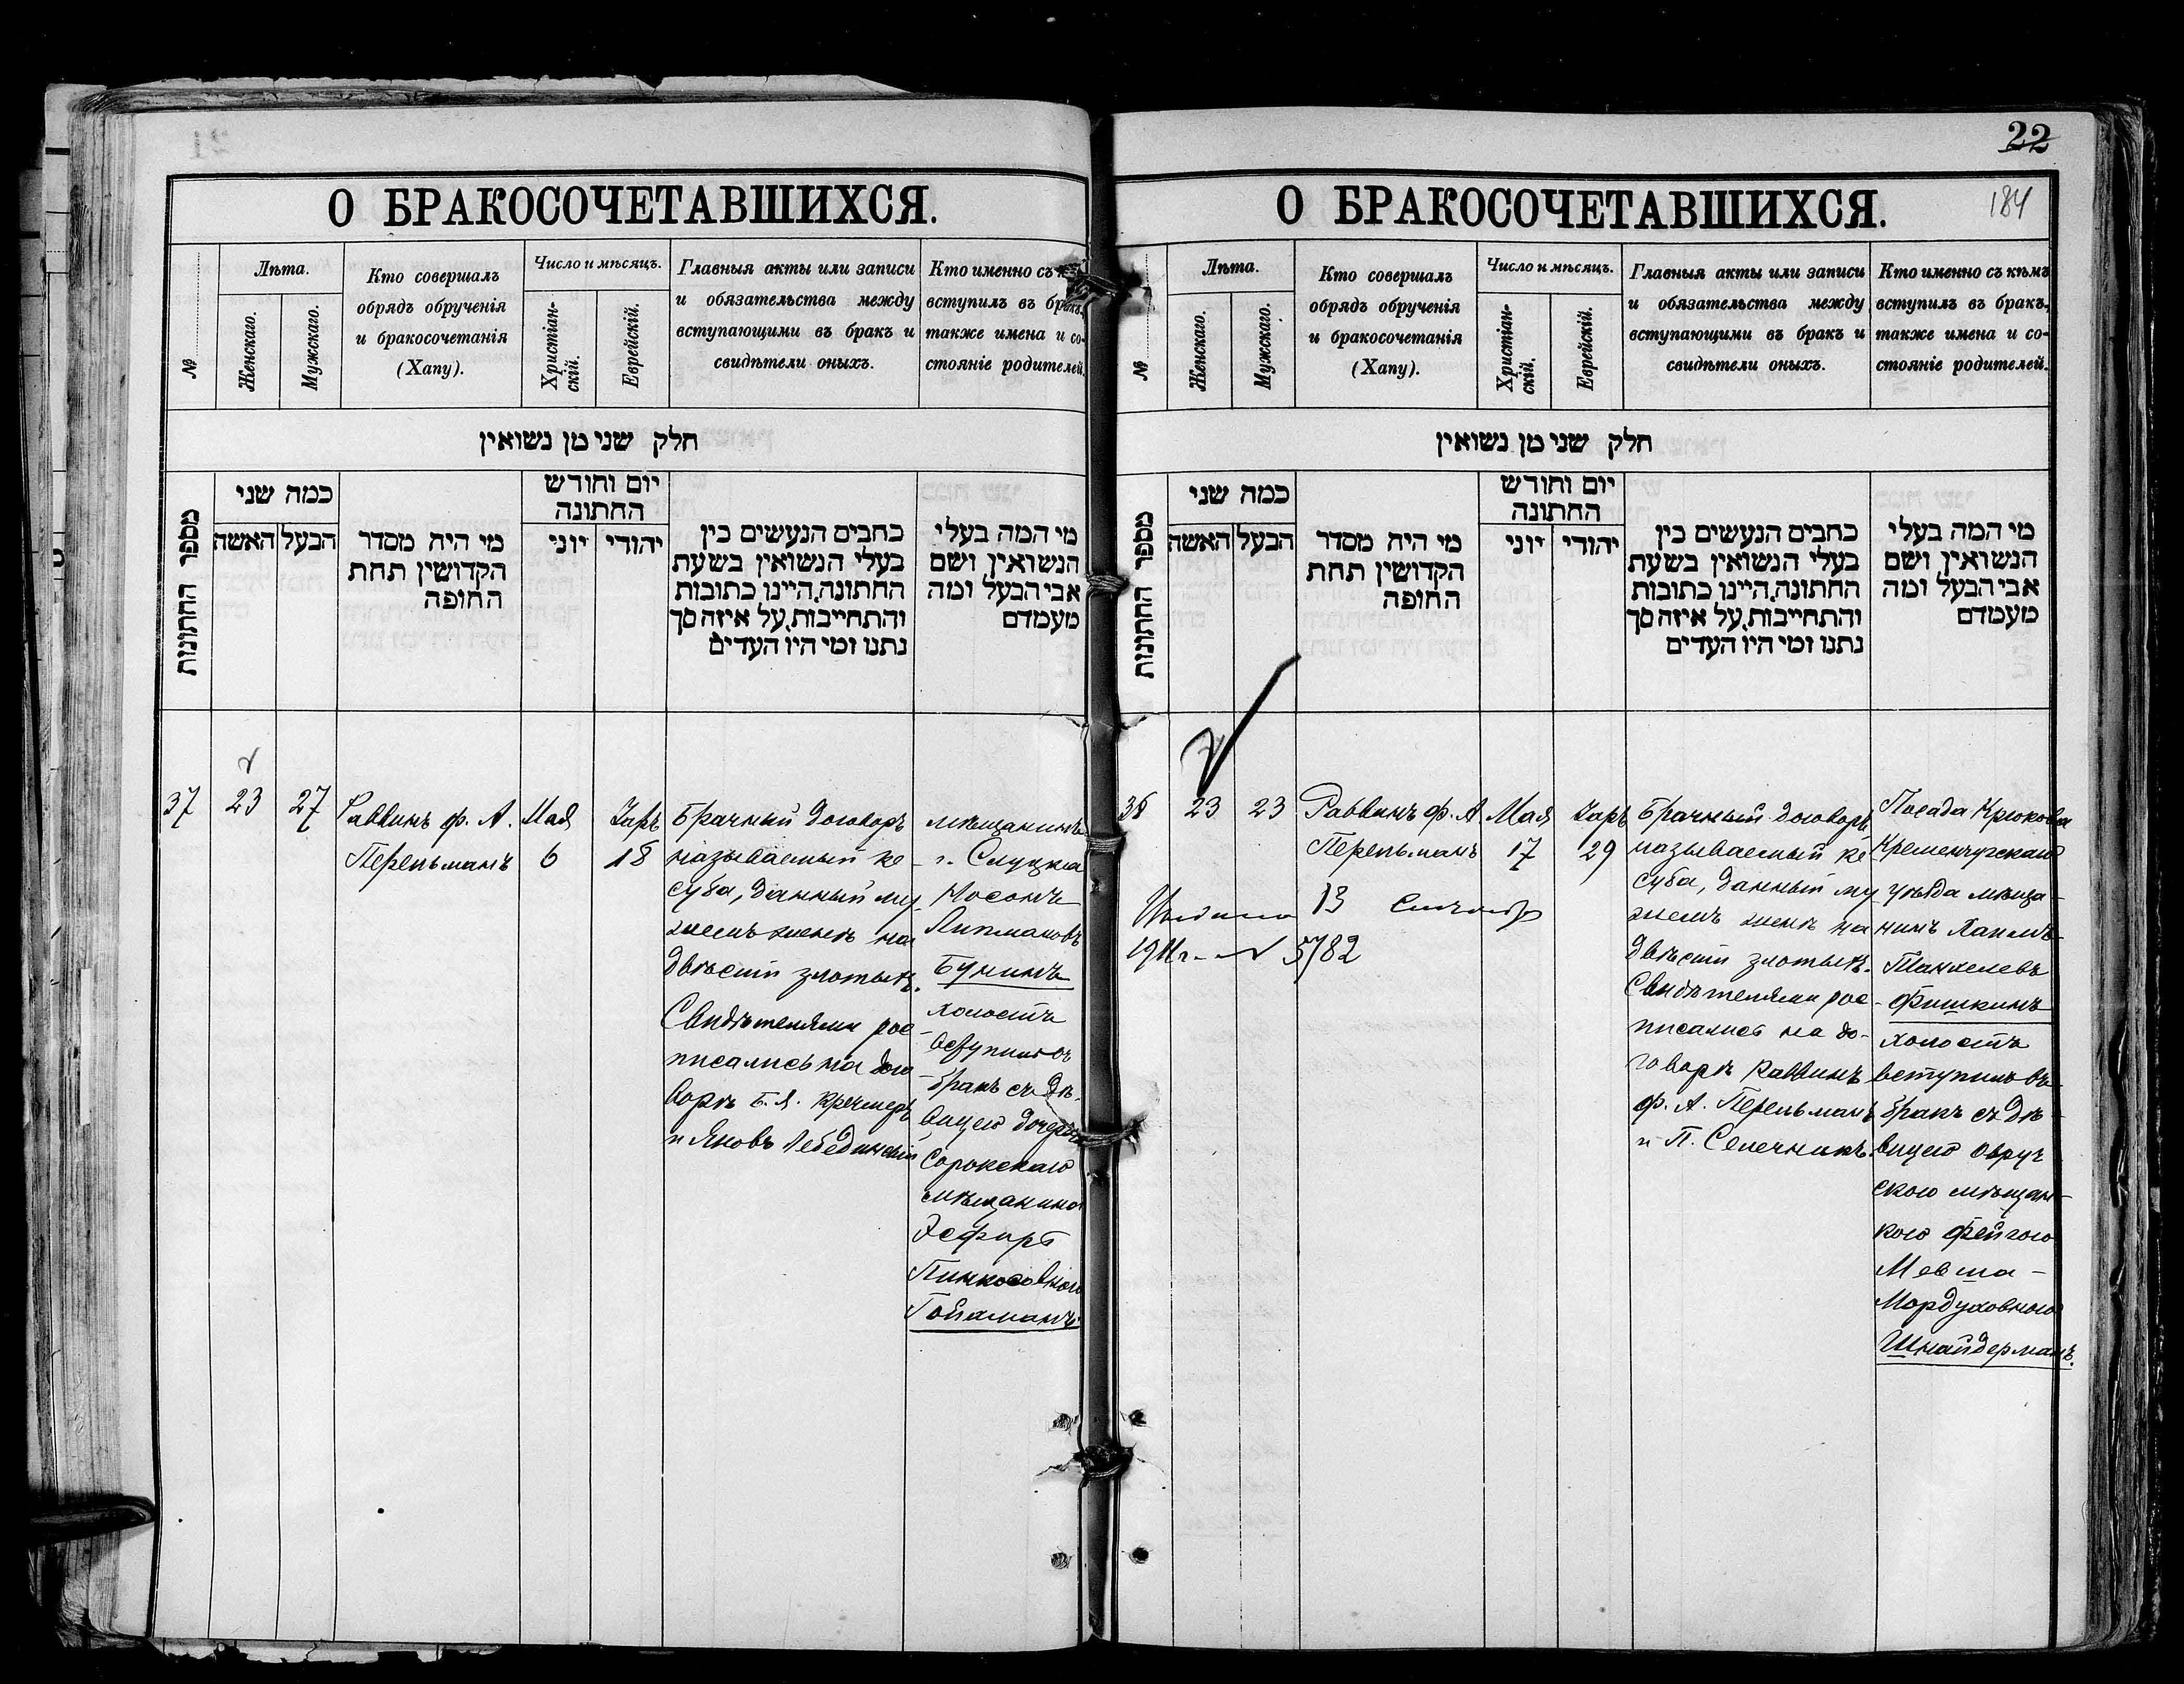 22
184
О БРАКОСОЧЕТАВШИХСЯ.
№
Лѣта.
Женскаго.
Мужскаго.
Кто совершалъ
обрядъ обрученія
и бракосочетанія
(Хапу).
Число и мѣсяцъ.
Христіан-
скій.
Еврейскій.
Главныя акты или записи
и обязательства между
вступающими въ бракъ и
свидѣтели оныхъ.
Кто именно съ
вступилъ въ бракъ,
также имена и со-
стояніе родителей.
חלק שני מן נשואין
מספר החתונות
כמה שני
האשה
הבעל
מי היה מסדר
הקדושין תחת
החופה
יום וחודש
החתונה
יוני
יהודי
כתבים הנעשים בין
בעלי הנשואין בשעת
החתונה, היינו כתובות
והתחייבות, על איזה סך
נתנו ומי היו העדים
מי המה בעלי
הנשואין ושם
אבי הבעל ומה
מעמדם
37
23
27
Раввинъ ф. А.
Перельманъ
Мая
6
Іаръ
18
Брачный договоръ
называемый ке-
суба, данный му-
жемъ женѣ на
двѣсти злотыхъ.
Свидѣтелями рос-
писались на дого
ворѣ Б. Я. Кречмеръ
и Яковъ Лебединскій
мѣщанинъ
г. Слуцка
Носонъ
Липмановъ
Бунинъ
холостъ
вступилъ въ
бракъ съ дѣ-
вицею дочерью
Сорокскаго
мѣщанина
Эсфирь
Пинкосовною
Гойхманъ
О БРАКОСОЧЕТАВШИХСЯ.
№
Лѣта.
Женскаго.
Мужскаго.
Кто совершалъ
обрядъ обрученія
и бракосочетанія
(Хапу).
Число и мѣсяцъ.
Христіан-
скій.
Еврейскій.
Главныя акты или записи
и обязательства между
вступающими въ бракъ и
свидѣтели оныхъ.
Кто именно съ кѣмъ
вступилъ въ бракъ,
также имена и со-
стояніе родителей.
חלק שני מן נשואין
מספר החתונות
כמה שני
האשה
הבעל
מי היה מסדר
הקדושין תחת
החופה
יום וחודש
החתונה
יוני
יהודי
כתבים הנעשים בין
בעלי הנשואין בשעת
החתונה, היינו כתובות
והתחייבות, על איזה סך
נתנו ומי היו העדים
מי המה בעלי
הנשואין ושם
אבי הבעל ומה
מעמדם
38
23
23
Раввинъ ф. А
Перельманъ
13
1911г. N 5782
Мая
17
Іаръ
29
Брачный договоръ
называемый ке
суба, данный му
жемъ женѣ на
двѣсти злотыхъ.
Свидѣтелями рос-
писались на до-
говорѣ Раввинъ
ф. А. Перельманъ
и П. Селечникъ.
Посада Крюкова
Кременчугскаго
уѣзда мѣща-
нинъ Хаимъ
Танхелевъ
Фишкинъ
холостъ
вступилъ въ
бракъ съ дѣ-
вицею Овруч
скою мѣщан-
кою Фейгою
Мевша-
Мордуховною
Шнайдерманъ.